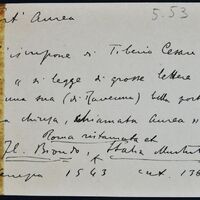 ort' Aurea 5.53
iscrizione di Tiberio Cesar
" si legge di grosse lettere
una sua (di Ravenna) bella port
chiesa, chiamata Aurea "
Roma ristaurata et
Fl. Biondo, Italia illustr
1543 car. 136